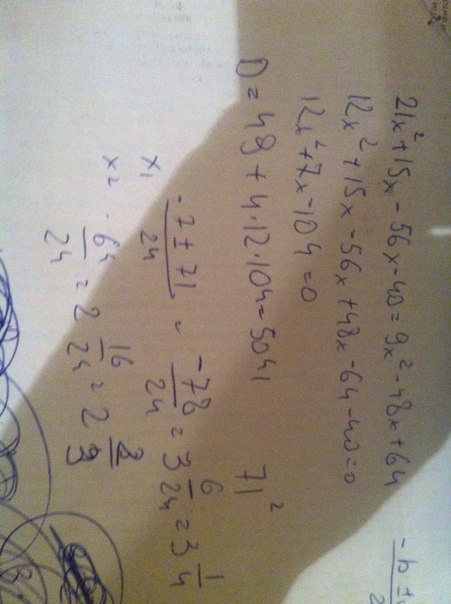 21x² + 15x - 56x - 40 = 9x² - 48x + 64
12x² + 15x - 56x + 48x - 64 - 40 = 0
12x² + 7x - 104 = 0
D = 49 + 4·12·104 = 5041 71²
x₁ \frac{-7 ± 71}{24} = \frac{-78}{24} = 3 \frac{6}{24} = 3 \frac{1}{4}
x₂ · \frac{64}{24} = 2 \frac{16}{24} = 2 \frac{2}{3}